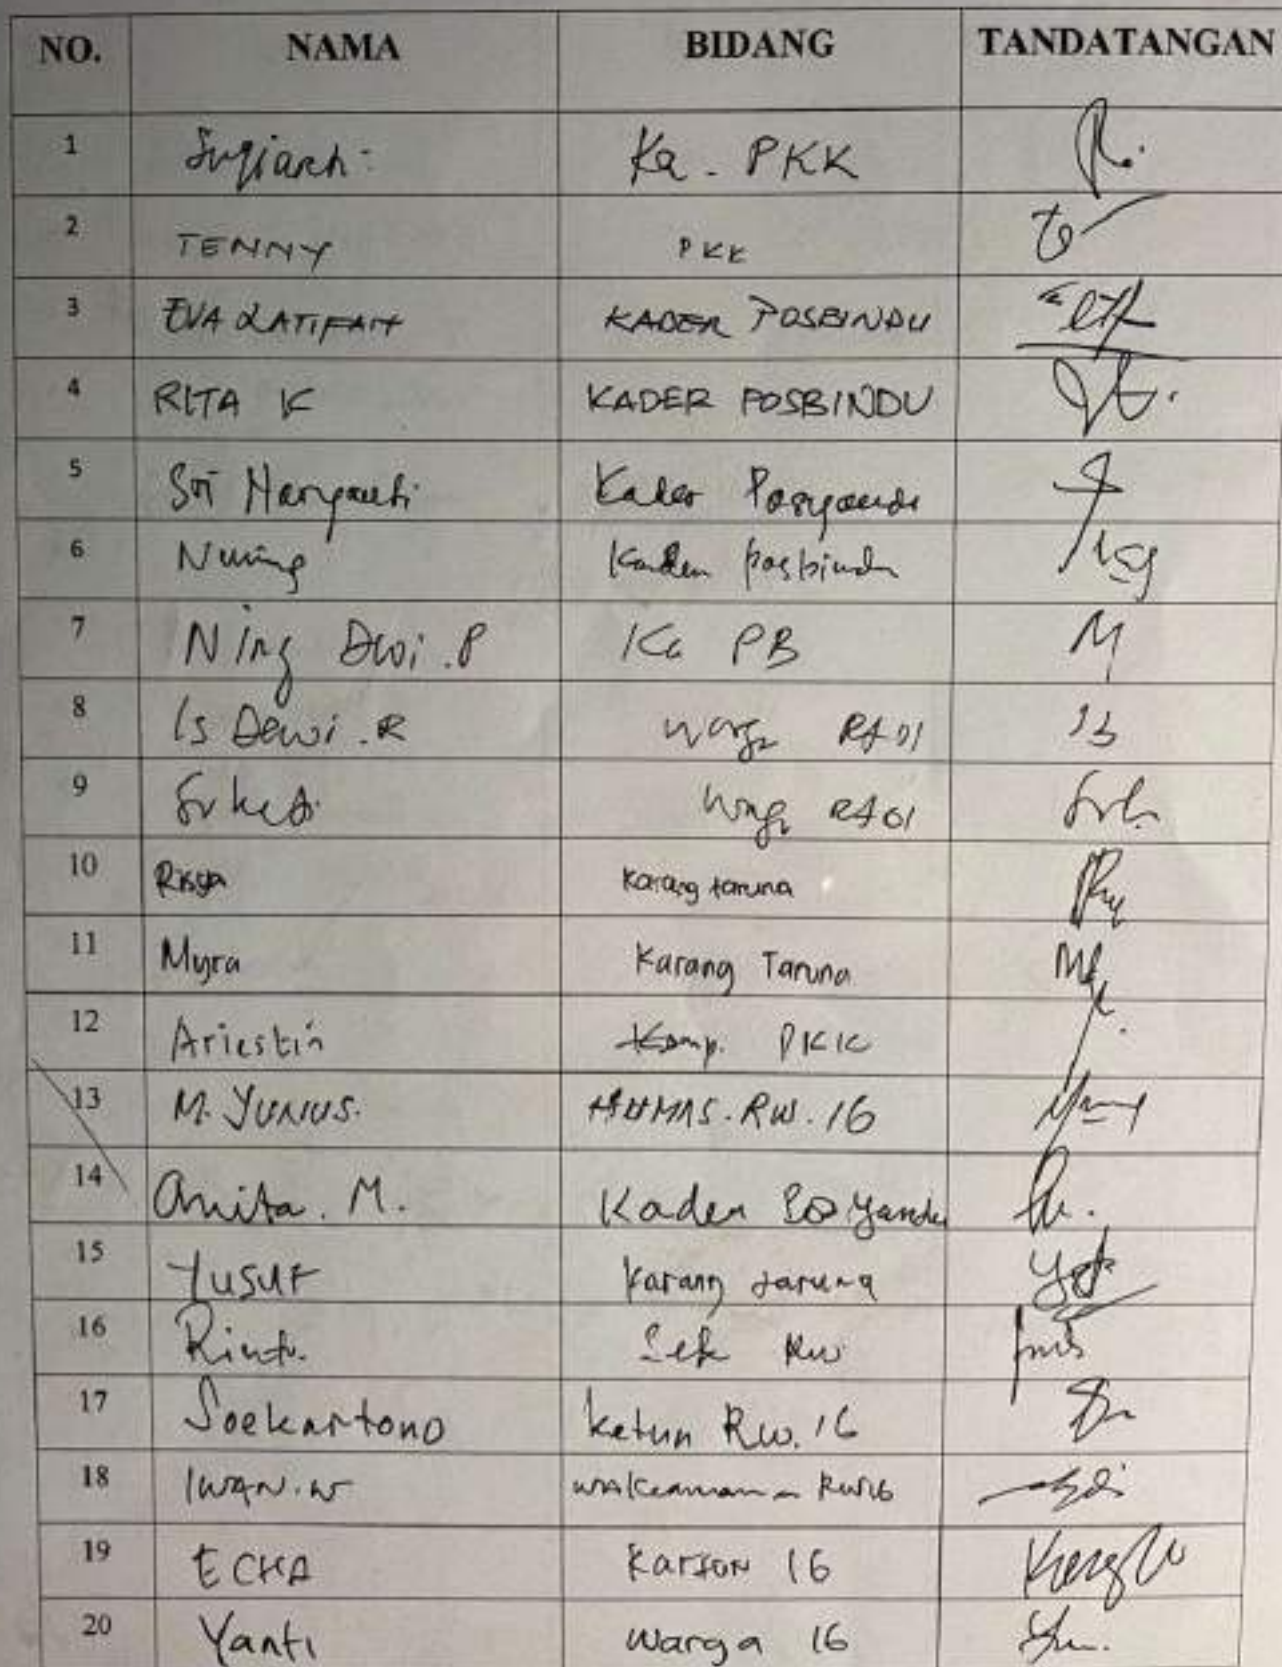 NO. NAMA BIDANG TANDATANGAN
1 Sugiarti Ka. PKK
2 TENNY PKK
3 EVA LATIFAH KADER POSBINDU
4 RITA K KADER POSBINDU
5 Sri Haryanti Kader Posyandu
6 Nuning Kader posbindu
7 Ning Dewi .P Ka PB
8 Is Dewi .R warga Rt 01
9 warga Rt 01
10 Risya Karang taruna
11 Myra Karang Taruna
12 Ariestin PKK
13 M. YUNUS. HUMAS. RW. 16
14 Anita. M. Kader Posyandu
15 YUSUF Karang taruna
16 Sek Rw
17 Soekartono Ketua Rw. 16
18 IWAN. W
19 ECHA 16
20 Yanti Warga 16